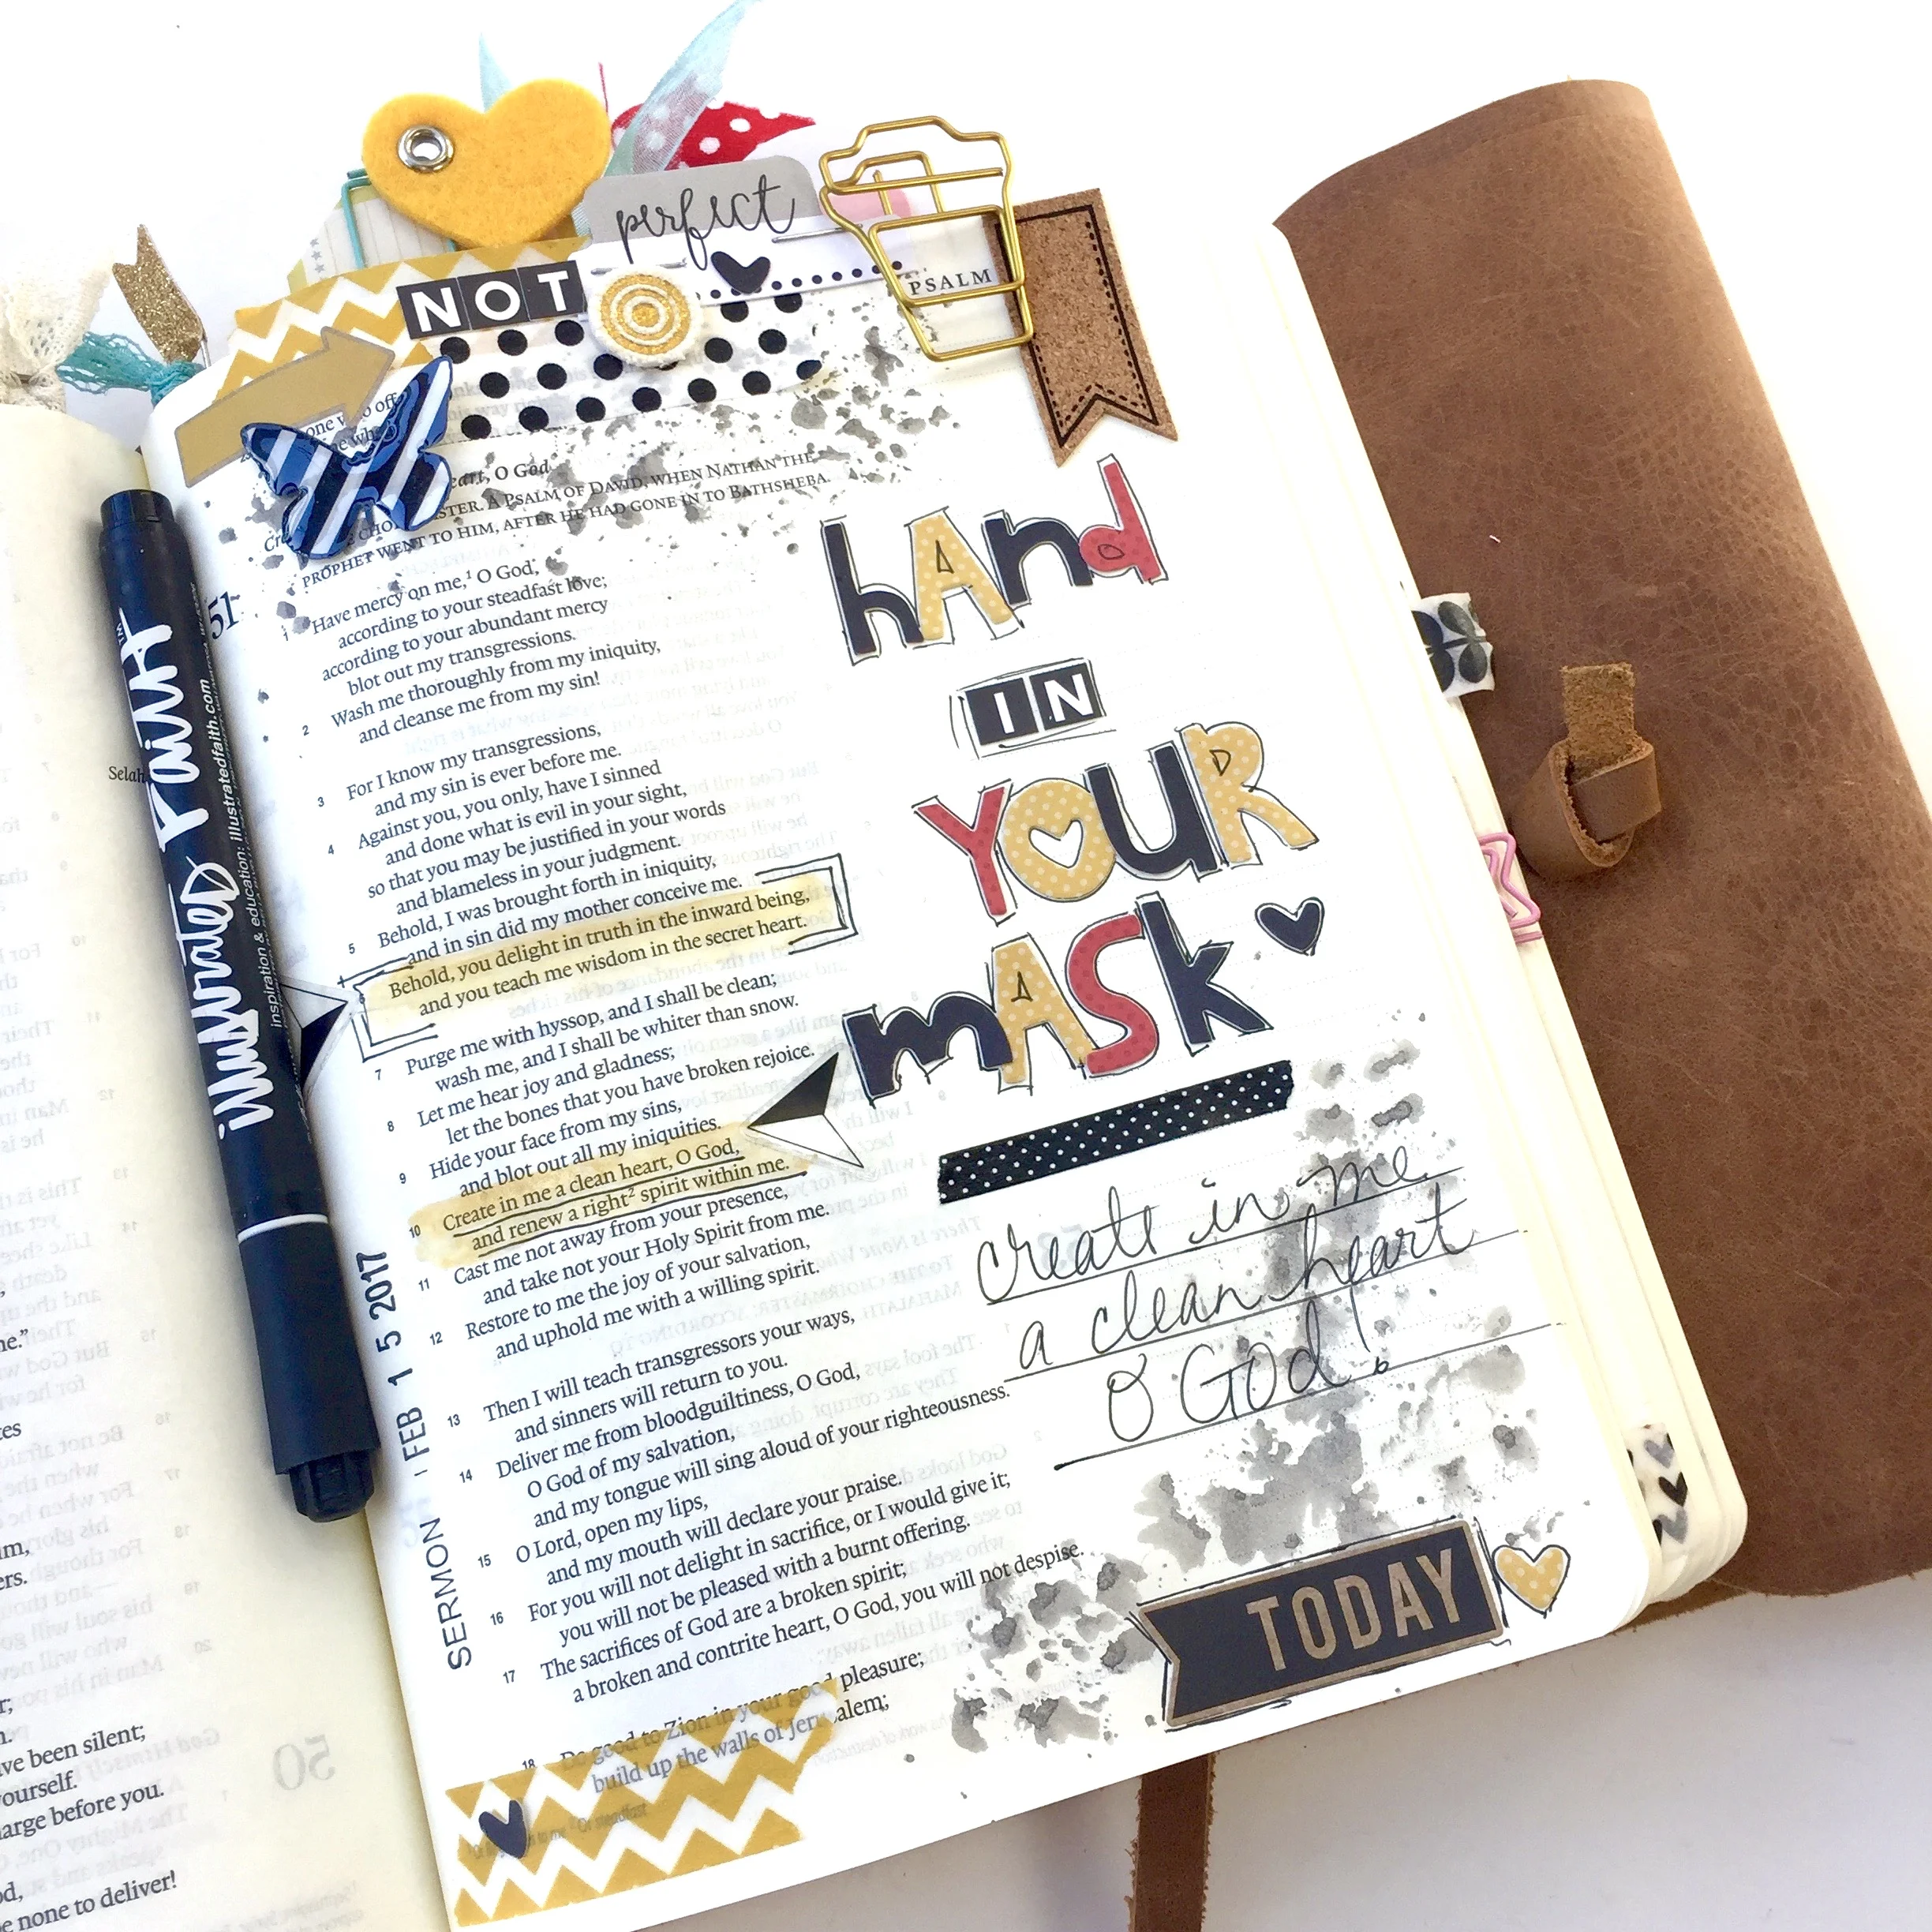 perfect
NOT
PSALM
one who off
eart, O God
STER. A PSALM OF DAVID, WHEN NATHAN THE
PROPHET WENT TO HIM, AFTER HE HAD GONE IN TO BATHSHEBA.
51
1 Have mercy on me,1 O God,
according to your steadfast love;
according to your abundant mercy
blot out my transgressions.
2 Wash me thoroughly from my iniquity,
and cleanse me from my sin!
3 For I know my transgressions,
and my sin is ever before me.
4 Against you, you only, have I sinned
and done what is evil in your sight,
so that you may be justified in your words
and blameless in your judgment.
5 Behold, I was brought forth in iniquity,
and in sin did my mother conceive me.
6 Behold, you delight in truth in the inward being,
and you teach me wisdom in the secret heart.
7 Purge me with hyssop, and I shall be clean;
wash me, and I shall be whiter than snow.
8 Let me hear joy and gladness;
let the bones that you have broken rejoice.
9 Hide your face from my sins,
and blot out all my iniquities.
10 Create in me a clean heart, O God,
and renew a right2 spirit within me.
11 Cast me not away from your presence,
and take not your Holy Spirit from me.
12 Restore to me the joy of your salvation,
and uphold me with a willing spirit.
13 Then I will teach transgressors your ways,
and sinners will return to you.
14 Deliver me from bloodguiltiness, O God,
O God of my salvation,
and my tongue will sing aloud of your righteousness.
15 O Lord, open my lips,
and my mouth will declare your praise.
16 For you will not delight in sacrifice, or I would give it;
you will not be pleased with a burnt offering.
17 The sacrifices of God are a broken spirit;
a broken and contrite heart, O God, you will not despise.
18 Do good to Zion in your good pleasure;
build up the walls of Jerusalem;
hAnd
IN
YOUR
mASk
create in me
a clean heart
O God!
TODAY
SERMON - FEB 15 2017
illustrated Faith™
inspiration & education: illustratedfaith.com
Selah
me.”
ve been silent;
yourself.
arge before you.
be none to deliver!
50